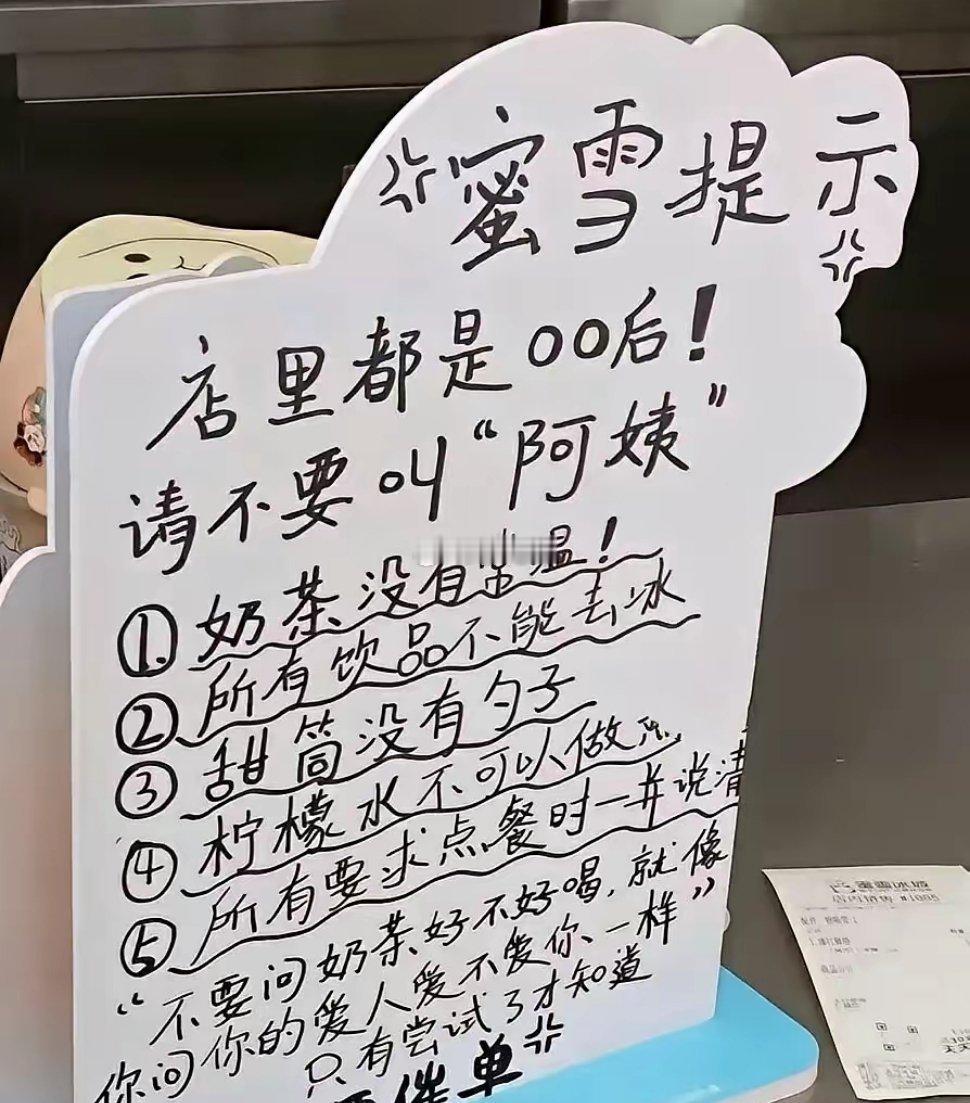 蜜雪提示
店里都是00后！
请不要叫“阿姨”
①奶茶没有常温！
②所有饮品不能去冰
③甜筒没有勺子
④柠檬水不可以做
⑤所有要求点餐时一并说清
“不要问奶茶好不好喝，就像
你问你的爱人爱不爱你一样”
只有尝试了才知道
催单
蜜雪冰城